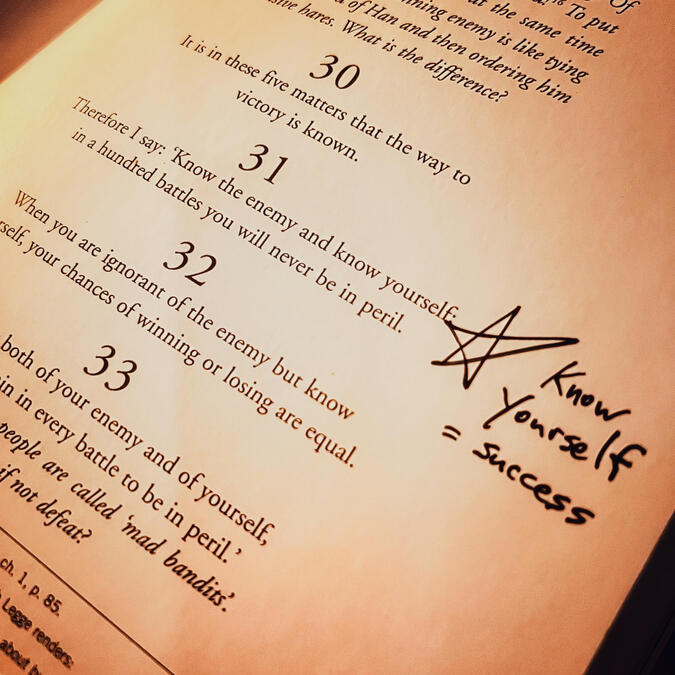 Of
To put
at the same time
enemy is like tying
of Han and then ordering him
hares. What is the difference?
30
It is in these five matters that the way to
victory is known.
31
Therefore I say: ‘Know the enemy and know yourself;
in a hundred battles you will never be in peril.
32
When you are ignorant of the enemy but know
your chances of winning or losing are equal.
33
both of your enemy and of yourself,
in every battle to be in peril.’
people are called ‘mad bandits’.
if not defeat?
ch. 1, p. 85.
Legge renders:
about
Know
Yourself
= success